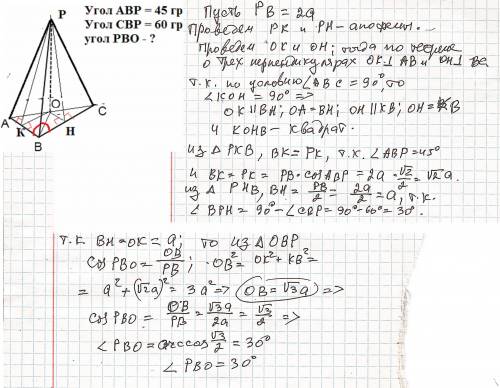 Угол ABP = 45 гр
Угол CBP = 60 гр
угол PBO - ?
P
O
A
K
B
H
C
Пусть PB = 2a
Проведем PK и PH - апофемы.
Проведем OK и OH; тогда по теореме
о трех перпендикулярах OK⊥AB и OH⊥BC
т.к. по условию ∠ABC = 90°, то
∠KOH = 90° =>
OK∥BH; OA=BH; OH∥KB; OH=KB
и KOHB - квадрат.
из △PKB, BK=PK, т.к. ∠ABP=45°
и BK=PK= PB·cosABP = 2a·√2/2 = √2a.
из △PHB, BH= PB/2 = 2a/2 = a, т.к.
∠BPH = 90° - ∠CBP = 90° - 60° = 30°.
т.к BH=OK=a; то из △OBP
cosPBO = OB/PB; OB² = OK² + KB² =
= a² + (√2a)² = 3a² => OB = √3a =>
cosPBO = OB/PB = √3a/2a = √3/2 =>
∠PBO = arccos √3/2 = 30°
∠PBO = 30°